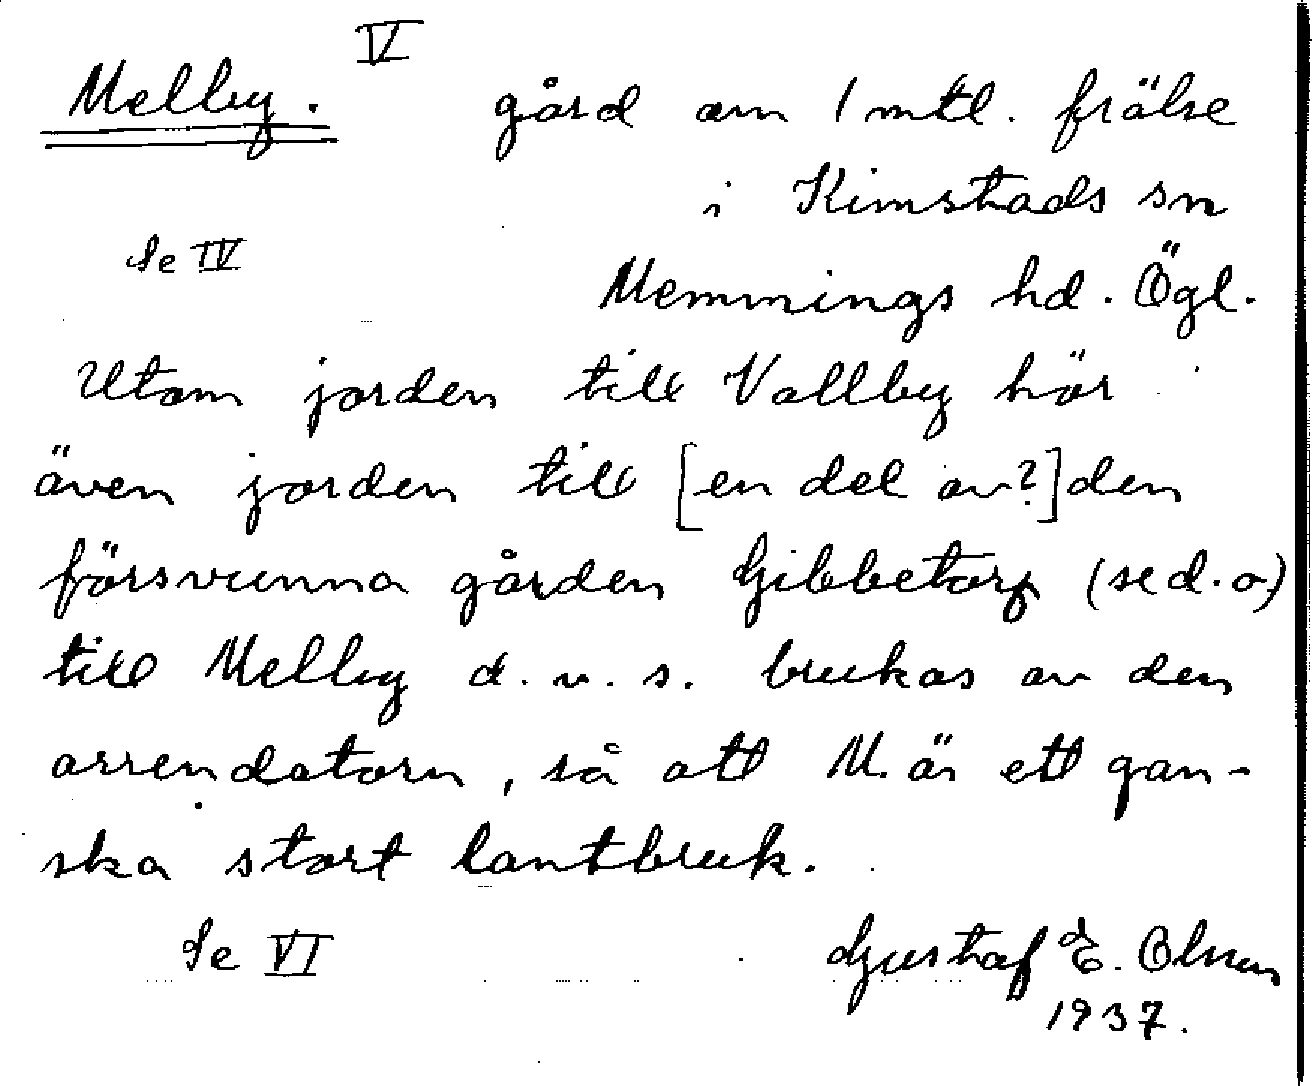 V
Melby. gård om 1 mtl. frälse
i Kimstads sn
Se IV
Memmings hd. Ögl.
Utom jorden till Vallby hör
även jorden till [en del av?] den
försvunna gården Gibbetorp (se d.o)
till Melby d. v. s. brukas av den
arrendatorn, så att M. är ett gan-
ska stort lantbruk.
Se VI
Gustaf E. Olsson
1937.